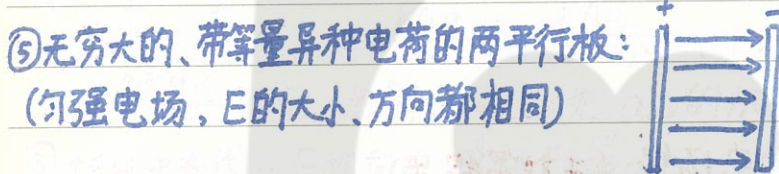 + -
⑤无穷大的、带等量异种电荷的两平行板:
(匀强电场,E的大小、方向都相同)